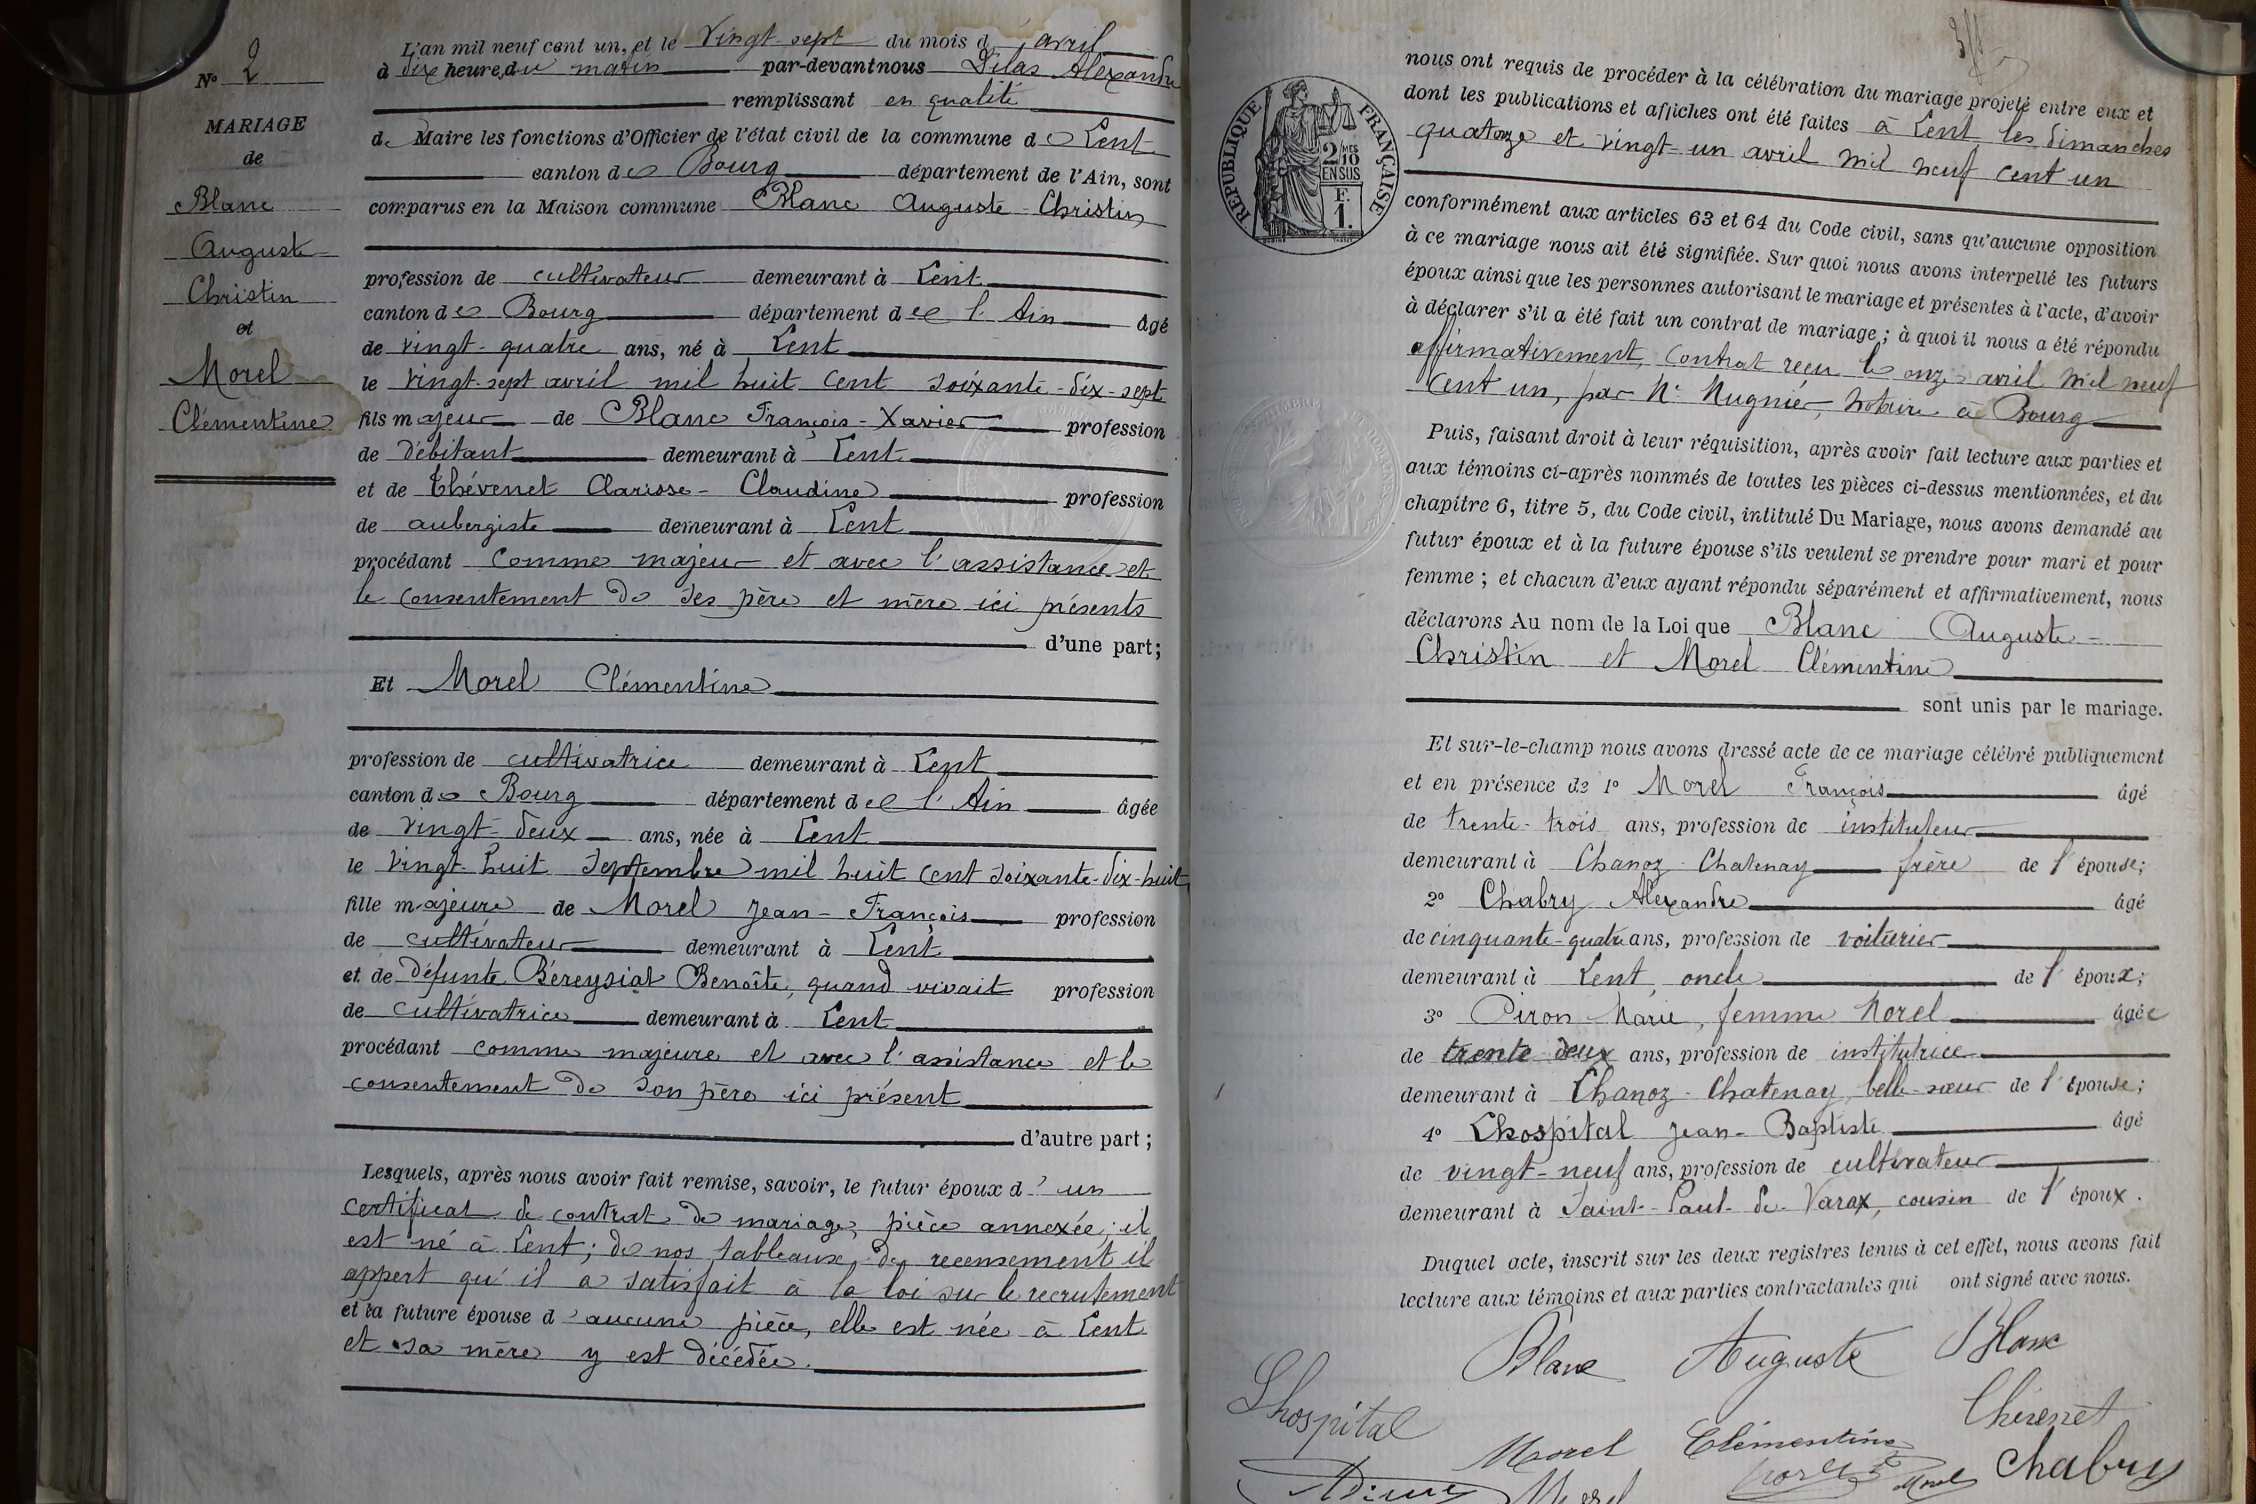 N° 2
MARIAGE
de
Blanc
Auguste
Christin
et
Morel
Clémentine
L'an mil neuf cent un, et le vingt-sept du mois d'avril
à dix heures du matin par-devant nous Dilas Alexandre
remplissant en qualité
de Maire les fonctions d'Officier de l'état civil de la commune de Lent
canton de Bourg département de l'Ain, sont
comparus en la Maison commune Blanc Auguste-Christin
profession de cultivateur demeurant à Lent
canton de Bourg département de l'Ain âgé
de vingt-quatre ans, né à Lent
le vingt-sept avril mil huit cent soixante-dix-sept
fils majeur de Blanc François-Xavier profession
de débitant demeurant à Lent
et de Thévenet Clarisse-Claudine profession
de aubergiste demeurant à Lent
procédant comme majeur et avec l'assistance et
le consentement de ses père et mère ici présents
d'une part;
Et Morel Clémentine
profession de cultivatrice demeurant à Lent
canton de Bourg département de l'Ain âgée
de vingt-deux ans, née à Lent
le vingt-huit septembre mil huit cent soixante-dix-huit
fille majeure de Morel Jean-François profession
de cultivateur demeurant à Lent
et de défunte Béreyziat Benoîte, quand vivait profession
de cultivatrice demeurant à Lent
procédant comme majeure et avec l'assistance et le
consentement de son père ici présent
d'autre part;
Lesquels, après nous avoir fait remise, savoir, le futur époux d'un
certificat de contrat de mariage, pièce annexée; il
est né à Lent; de nos tableaux de recensement il
appert qu'il a satisfait à la loi sur le recrutement
et la future épouse d'aucune pièce, elle est née à Lent
et sa mère y est décédée.
RÉPUBLIQUE FRANÇAISE
2/10 MES
EN SUS
F.
1.
nous ont requis de procéder à la célébration du mariage projeté entre eux et
dont les publications et affiches ont été faites à Lent les dimanches
quatorze et vingt-un avril mil neuf cent un
conformément aux articles 63 et 64 du Code civil, sans qu'aucune opposition
à ce mariage nous ait été signifiée. Sur quoi nous avons interpellé les futurs
époux ainsi que les personnes autorisant le mariage et présentes à l'acte, d'avoir
à déclarer s'il a été fait un contrat de mariage; à quoi il nous a été répondu
affirmativement, contrat reçu le onze avril mil neuf
cent un, par Me Mugnier, notaire à Bourg
Puis, faisant droit à leur réquisition, après avoir fait lecture aux parties et
aux témoins ci-après nommés de toutes les pièces ci-dessus mentionnées, et du
chapitre 6, titre 5, du Code civil, intitulé Du Mariage, nous avons demandé au
futur époux et à la future épouse s'ils veulent se prendre pour mari et pour
femme; et chacun d'eux ayant répondu séparément et affirmativement, nous
déclarons Au nom de la Loi que Blanc Auguste-
Christin et Morel Clémentine
sont unis par le mariage.
Et sur-le-champ nous avons dressé acte de ce mariage célébré publiquement
et en présence de 1° Morel François âgé
de trente-trois ans, profession de instituteur
demeurant à Chanoz-Chatenay frère de l'épouse;
2° Chabry Alexandre âgé
de cinquante-quatre ans, profession de voiturier
demeurant à Lent, oncle de l'époux;
3° Piron Marie, femme Morel âgée
de trente deux ans, profession de institutrice
demeurant à Chanoz-Chatenay, belle-sœur de l'épouse;
4° Lhospital Jean-Baptiste âgé
de vingt-neuf ans, profession de cultivateur
demeurant à Saint-Paul-de-Varax, cousin de l'époux.
Duquel acte, inscrit sur les deux registres tenus à cet effet, nous avons fait
lecture aux témoins et aux parties contractantes qui ont signé avec nous.
Blanc Auguste Blanc
Lhospital Morel Clémentine Thévenet
Morel Morel Chabry